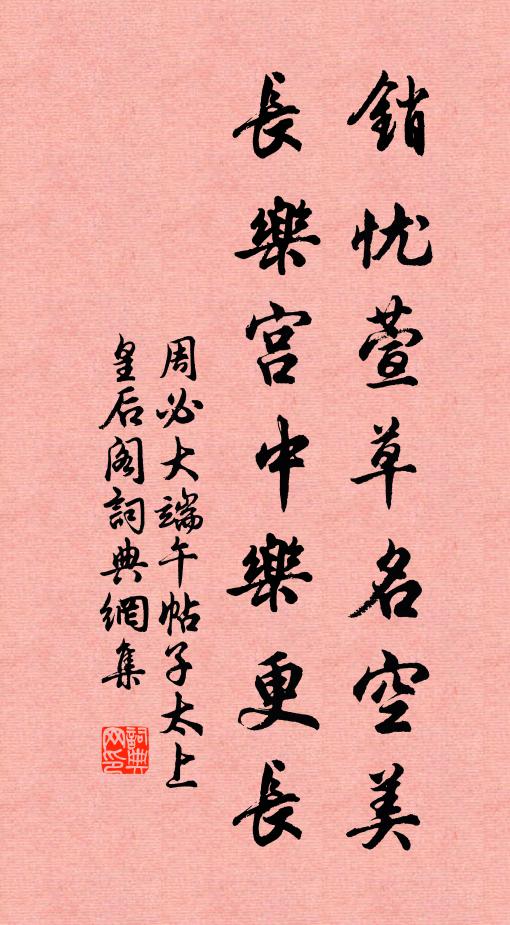 銷忧萱草名空美
長樂宮中樂更長
周必大端午帖子太上
皇后阁詞典網集
詞典
网印